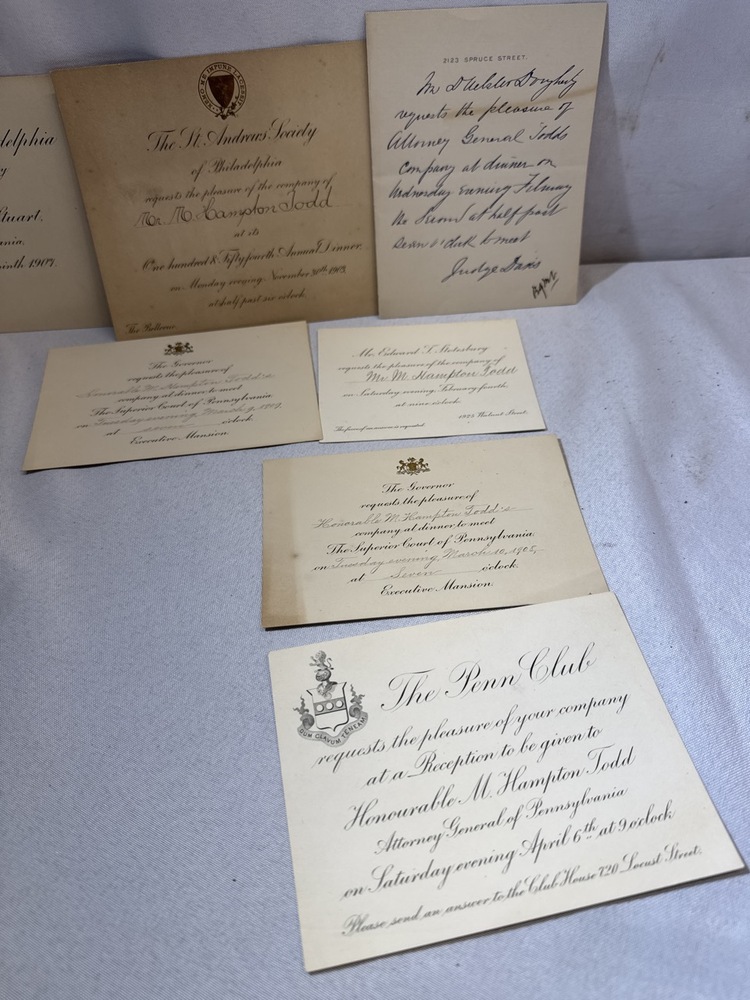 delphia
y
tuart.
ania.
ninth 1907
NEMO ME IMPUNE LACESSIT
The St. Andrew's Society
of Philadelphia
requests the pleasure of the company of
Mr. M. Hampton Todd
at its
One hundred & Fifty fourth Annual Dinner.
on Monday evening, November 30th 1903,
at half past six o'clock.
The Bellevue.
2123 SPRUCE STREET.
Mr D Webster Dougherty
requests the pleasure of
Attorney General Todds
company at dinner on
Wednesday evening
the Second at half past
Seven o'clock to meet
Judge Davis
The Governor
requests the pleasure of
Honorable M. Hampton Todd's
company at dinner to meet
The Superior Court of Pennsylvania
on Tuesday evening, March 9, 1909,
at seven o'clock.
Executive Mansion.
Mr. Edward T. Stotesbury
requests the pleasure of the company of
Mr. M. Hampton Todd
on Saturday evening, February fourth,
at nine o'clock.
1925 Walnut Street.
The favor of an answer is requested.
The Governor
requests the pleasure of
Honorable M. Hampton Todd's
company at dinner to meet
The Superior Court of Pennsylvania
on Tuesday evening, March 10, 1908,
at Seven o'clock.
Executive Mansion.
DUM CLAVUM TENEAM
The Penn Club
requests the pleasure of your company
at a Reception to be given to
Honourable M. Hampton Todd
Attorney General of Pennsylvania
on Saturday evening April 6th at 9 o'clock
Please send an answer to the Club House 720 Locust Street.